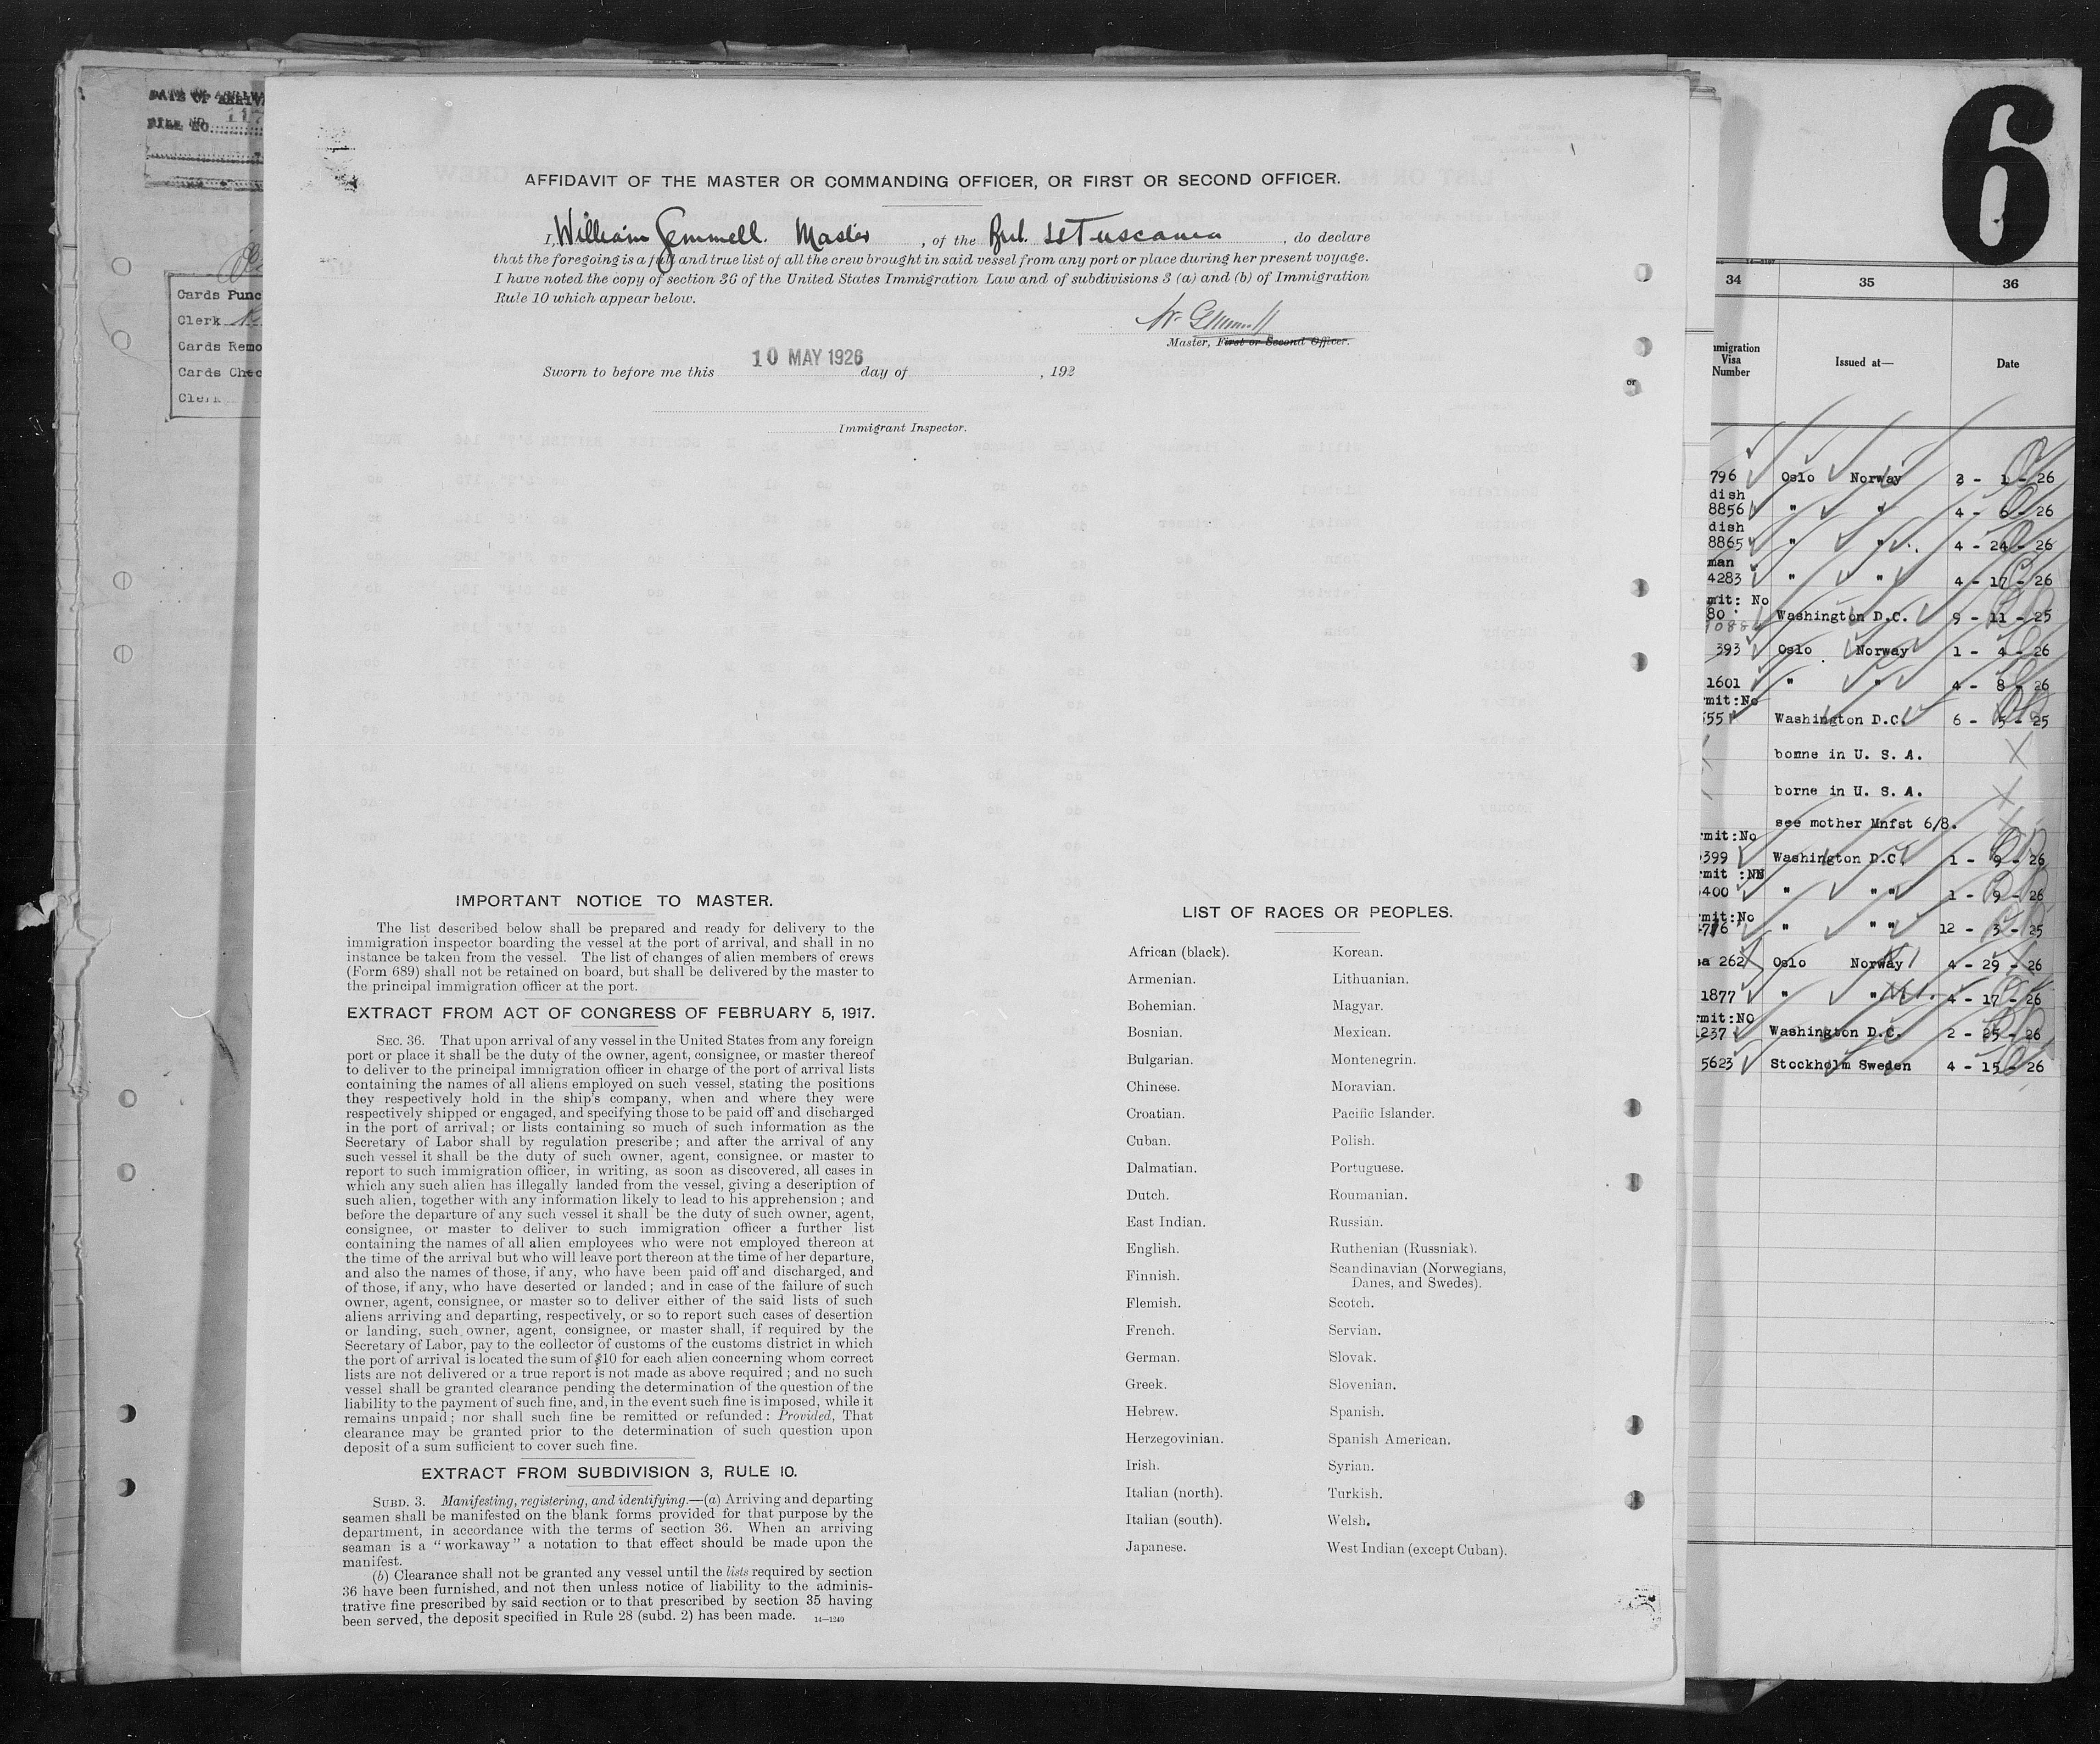 DATE OF ARRIV
FILE NO. 117
Cards Punc
Clerk
Cards Remo
Cards Chec
Clerk
AFFIDAVIT OF THE MASTER OR COMMANDING OFFICER, OR FIRST OR SECOND OFFICER.
I, William Gemmell. Master, of the Brit. SS Tuscania, do declare
that the foregoing is a full and true list of all the crew brought in said vessel from any port or place during her present voyage.
I have noted the copy of section 36 of the United States Immigration Law and of subdivisions 3 (a) and (b) of Immigration
Rule 10 which appear below.
W. Gemmell
Master, First or Second Officer.
10 MAY 1926
Sworn to before me this day of , 192
Immigrant Inspector.
IMPORTANT NOTICE TO MASTER.
The list described below shall be prepared and ready for delivery to the
immigration inspector boarding the vessel at the port of arrival, and shall in no
instance be taken from the vessel. The list of changes of alien members of crews
(Form 689) shall not be retained on board, but shall be delivered by the master to
the principal immigration officer at the port.
EXTRACT FROM ACT OF CONGRESS OF FEBRUARY 5, 1917.
SEC. 36. That upon arrival of any vessel in the United States from any foreign
port or place it shall be the duty of the owner, agent, consignee, or master thereof
to deliver to the principal immigration officer in charge of the port of arrival lists
containing the names of all aliens employed on such vessel, stating the positions
they respectively hold in the ship's company, when and where they were
respectively shipped or engaged, and specifying those to be paid off and discharged
in the port of arrival; or lists containing so much of such information as the
Secretary of Labor shall by regulation prescribe; and after the arrival of any
such vessel it shall be the duty of such owner, agent, consignee, or master to
report to such immigration officer, in writing, as soon as discovered, all cases in
which any such alien has illegally landed from the vessel, giving a description of
such alien, together with any information likely to lead to his apprehension; and
before the departure of any such vessel it shall be the duty of such owner, agent,
consignee, or master to deliver to such immigration officer a further list
containing the names of all alien employees who were not employed thereon at
the time of the arrival but who will leave port thereon at the time of her departure,
and also the names of those, if any, who have been paid off and discharged, and
of those, if any, who have deserted or landed; and in case of the failure of such
owner, agent, consignee, or master so to deliver either of the said lists of such
aliens arriving and departing, respectively, or so to report such cases of desertion
or landing, such owner, agent, consignee, or master shall, if required by the
Secretary of Labor, pay to the collector of customs of the customs district in which
the port of arrival is located the sum of $10 for each alien concerning whom correct
lists are not delivered or a true report is not made as above required; and no such
vessel shall be granted clearance pending the determination of the question of the
liability to the payment of such fine, and, in the event such fine is imposed, while it
remains unpaid; nor shall such fine be remitted or refunded: Provided, That
clearance may be granted prior to the determination of such question upon
deposit of a sum sufficient to cover such fine.
EXTRACT FROM SUBDIVISION 3, RULE 10.
SUBD. 3. Manifesting, registering, and identifying.—(a) Arriving and departing
seamen shall be manifested on the blank forms provided for that purpose by the
department, in accordance with the terms of section 36. When an arriving
seaman is a "workaway" a notation to that effect should be made upon the
manifest.
(b) Clearance shall not be granted any vessel until the lists required by section
36 have been furnished, and not then unless notice of liability to the adminis-
trative fine prescribed by said section or to that prescribed by section 35 having
been served, the deposit specified in Rule 28 (subd. 2) has been made. 14—1240
LIST OF RACES OR PEOPLES.
African (black).
Armenian.
Bohemian.
Bosnian.
Bulgarian.
Chinese.
Croatian.
Cuban.
Dalmatian.
Dutch.
East Indian.
English.
Finnish.
Flemish.
French.
German.
Greek.
Hebrew.
Herzegovinian.
Irish.
Italian (north).
Italian (south).
Japanese.
Korean.
Lithuanian.
Magyar.
Mexican.
Montenegrin.
Moravian.
Pacific Islander.
Polish.
Portuguese.
Roumanian.
Russian.
Ruthenian (Russniak).
Scandinavian (Norwegians,
Danes, and Swedes).
Scotch.
Servian.
Slovak.
Slovenian.
Spanish.
Spanish American.
Syrian.
Turkish.
Welsh.
West Indian (except Cuban).
or
6
34 35 36
mmigration
Visa
Number
Issued at—
Date
796 Oslo Norway 3 - 1 - 26
dish
8856 " " 4 - 6 - 26
dish
8865 " " 4 - 24 - 26
man
4283 " " 4 - 17 - 26
mit: No
80 Washington D.C. 9 - 11 - 25
393 Oslo Norway 1 - 4 - 26
1601 " " 4 - 8 - 26
mit:No
555 Washington D.C. 6 - 5 - 25
borne in U. S. A.
borne in U. S. A.
see mother Mnfst 6/8.
rmit:No
399 Washington D.C. 1 - 9 - 26
rmit :NN
400 " " " 1 - 9 - 26
mit:No
4776 " " " 12 - 3 - 25
sa 262 Oslo Norway 4 - 29 - 26
1877 " " 4 - 17 - 26
rmit:NO
1237 Washington D.C. 2 - 25 - 26
5623 Stockholm Sweden 4 - 15 - 26